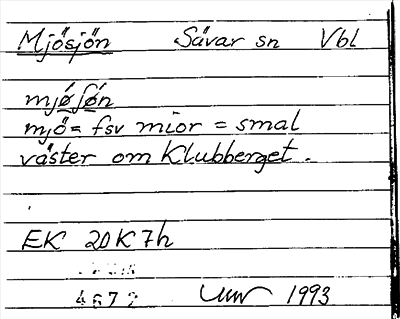 Mjösjön Sävar sn Vbl
mjǿʃǿn
mjö = fsv mior = smal
väster om Klubberget.
EK 20K7h
4672
1993